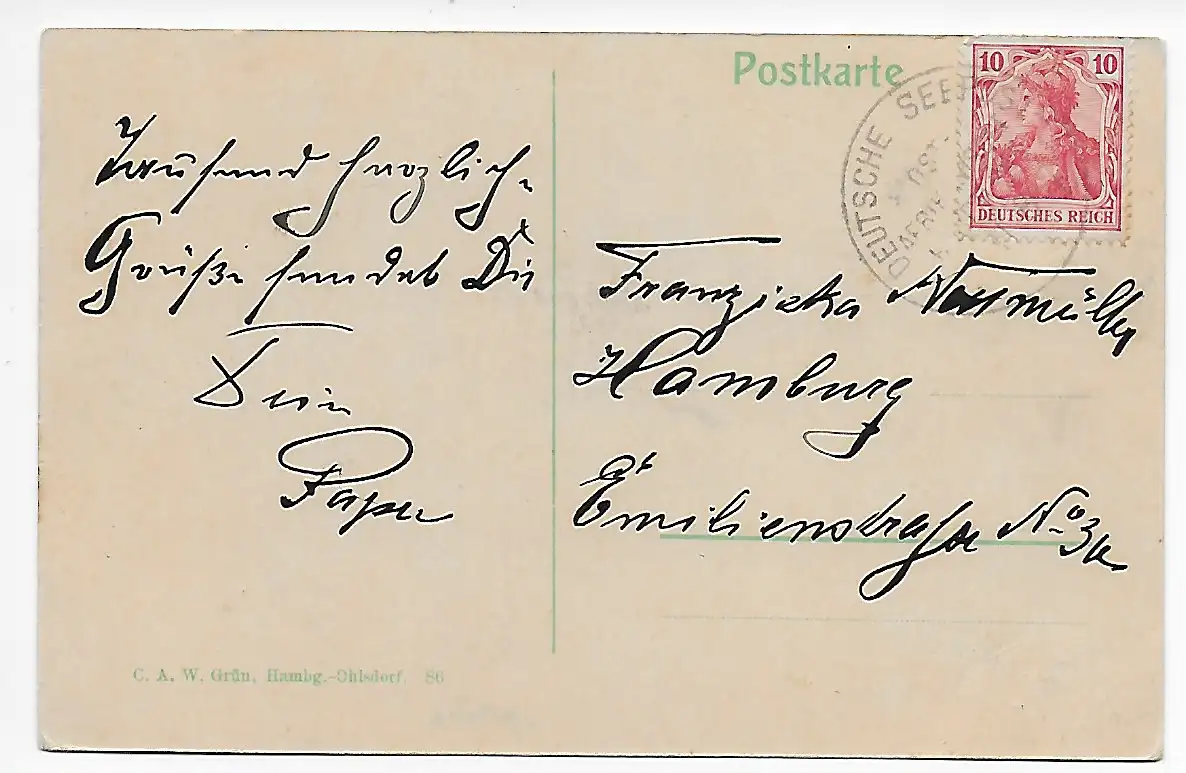 Tausend herzlich.
Grüße sendet Dir
Dein
Papa
C. A. W. Grün, Hambg.-Ohlsdorf. 86
Postkarte
DEUTSCHE SEE
POST
10 10
DEUTSCHES REICH
Franziska
Hamburg
Emilienstraße No 3a